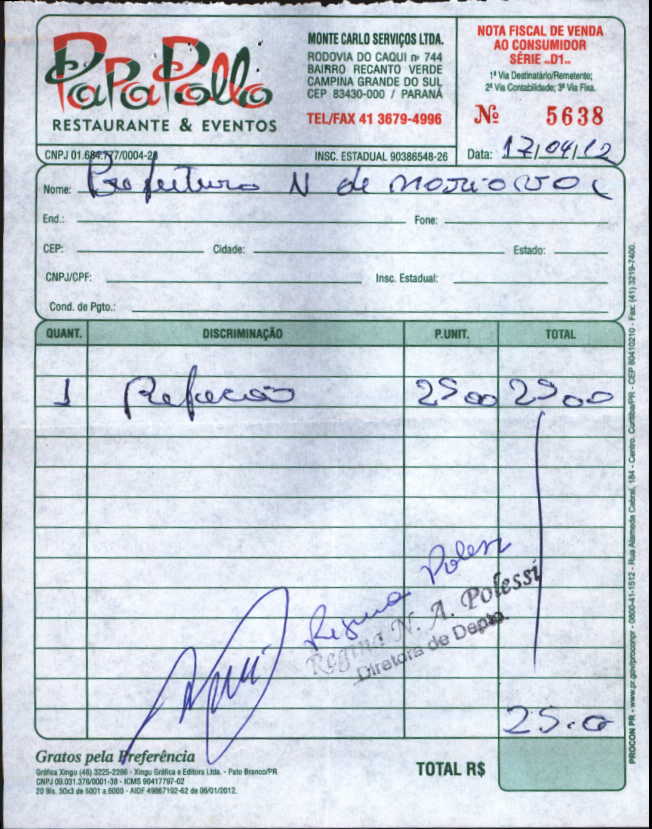 PaPaPollo
RESTAURANTE & EVENTOS
MONTE CARLO SERVIÇOS LTDA.
RODOVIA DO CAQUI nº 744
BAIRRO RECANTO VERDE
CAMPINA GRANDE DO SUL
CEP 83430-000 / PARANÁ
TEL/FAX 41 3679-4996
NOTA FISCAL DE VENDA
AO CONSUMIDOR
SÉRIE "D1"
1ª Via Destinatário/Remetente;
2ª Via Contabilidade; 3ª Via Fixa.
Nº 5638
CNPJ 01.684.777/0004-2
INSC. ESTADUAL 90386548-26
Data: 17/04/12
Nome: Prefeitura N de
End.: Fone:
CEP: Cidade: Estado:
CNPJ/CPF: Insc. Estadual:
Cond. de Pgto.:
QUANT. DISCRIMINAÇÃO P.UNIT. TOTAL
1 Refeição 25 00 25 00
Regina Polessi
Regina N. A. Polessi
Diretora de Depto.
25.0
Gratos pela Preferência
TOTAL R$
Gráfica Xingu (46) 3225-2286 - Xingu Gráfica e Editora Ltda. - Pato Branco/PR
CNPJ 09.031.376/0001-38 - ICMS 90417797-02
20 Bls. 50x3 de 5001 a 6000 - AIDF 49867192-62 de 06/01/2012.
PROCON PR - www.pr.gov/proconpr - 0800-41-1512 - Rua Alameda Cabral, 184 - Centro. Curitiba/PR - CEP 80410210 - Fax: (41) 3219-7400.